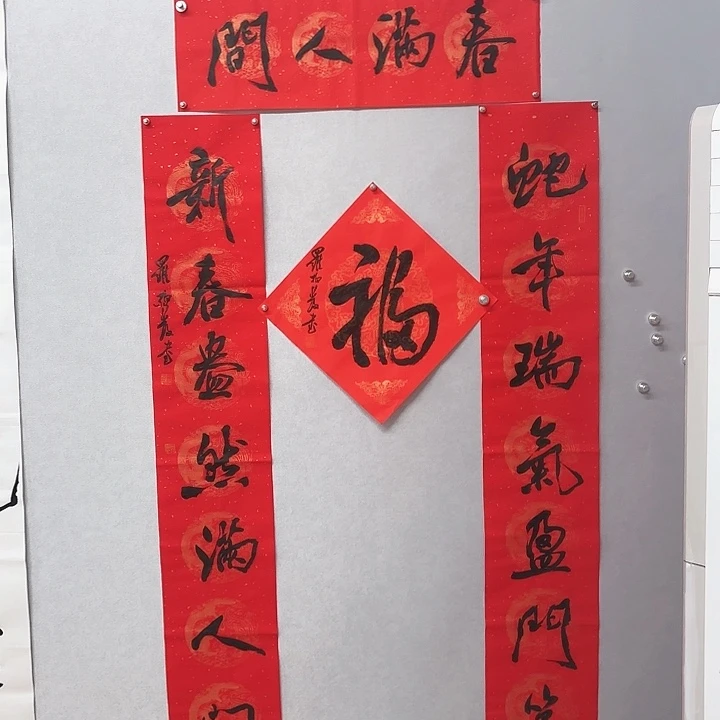 春滿人間
蛇年瑞氣盈門
福
新春盎然滿人